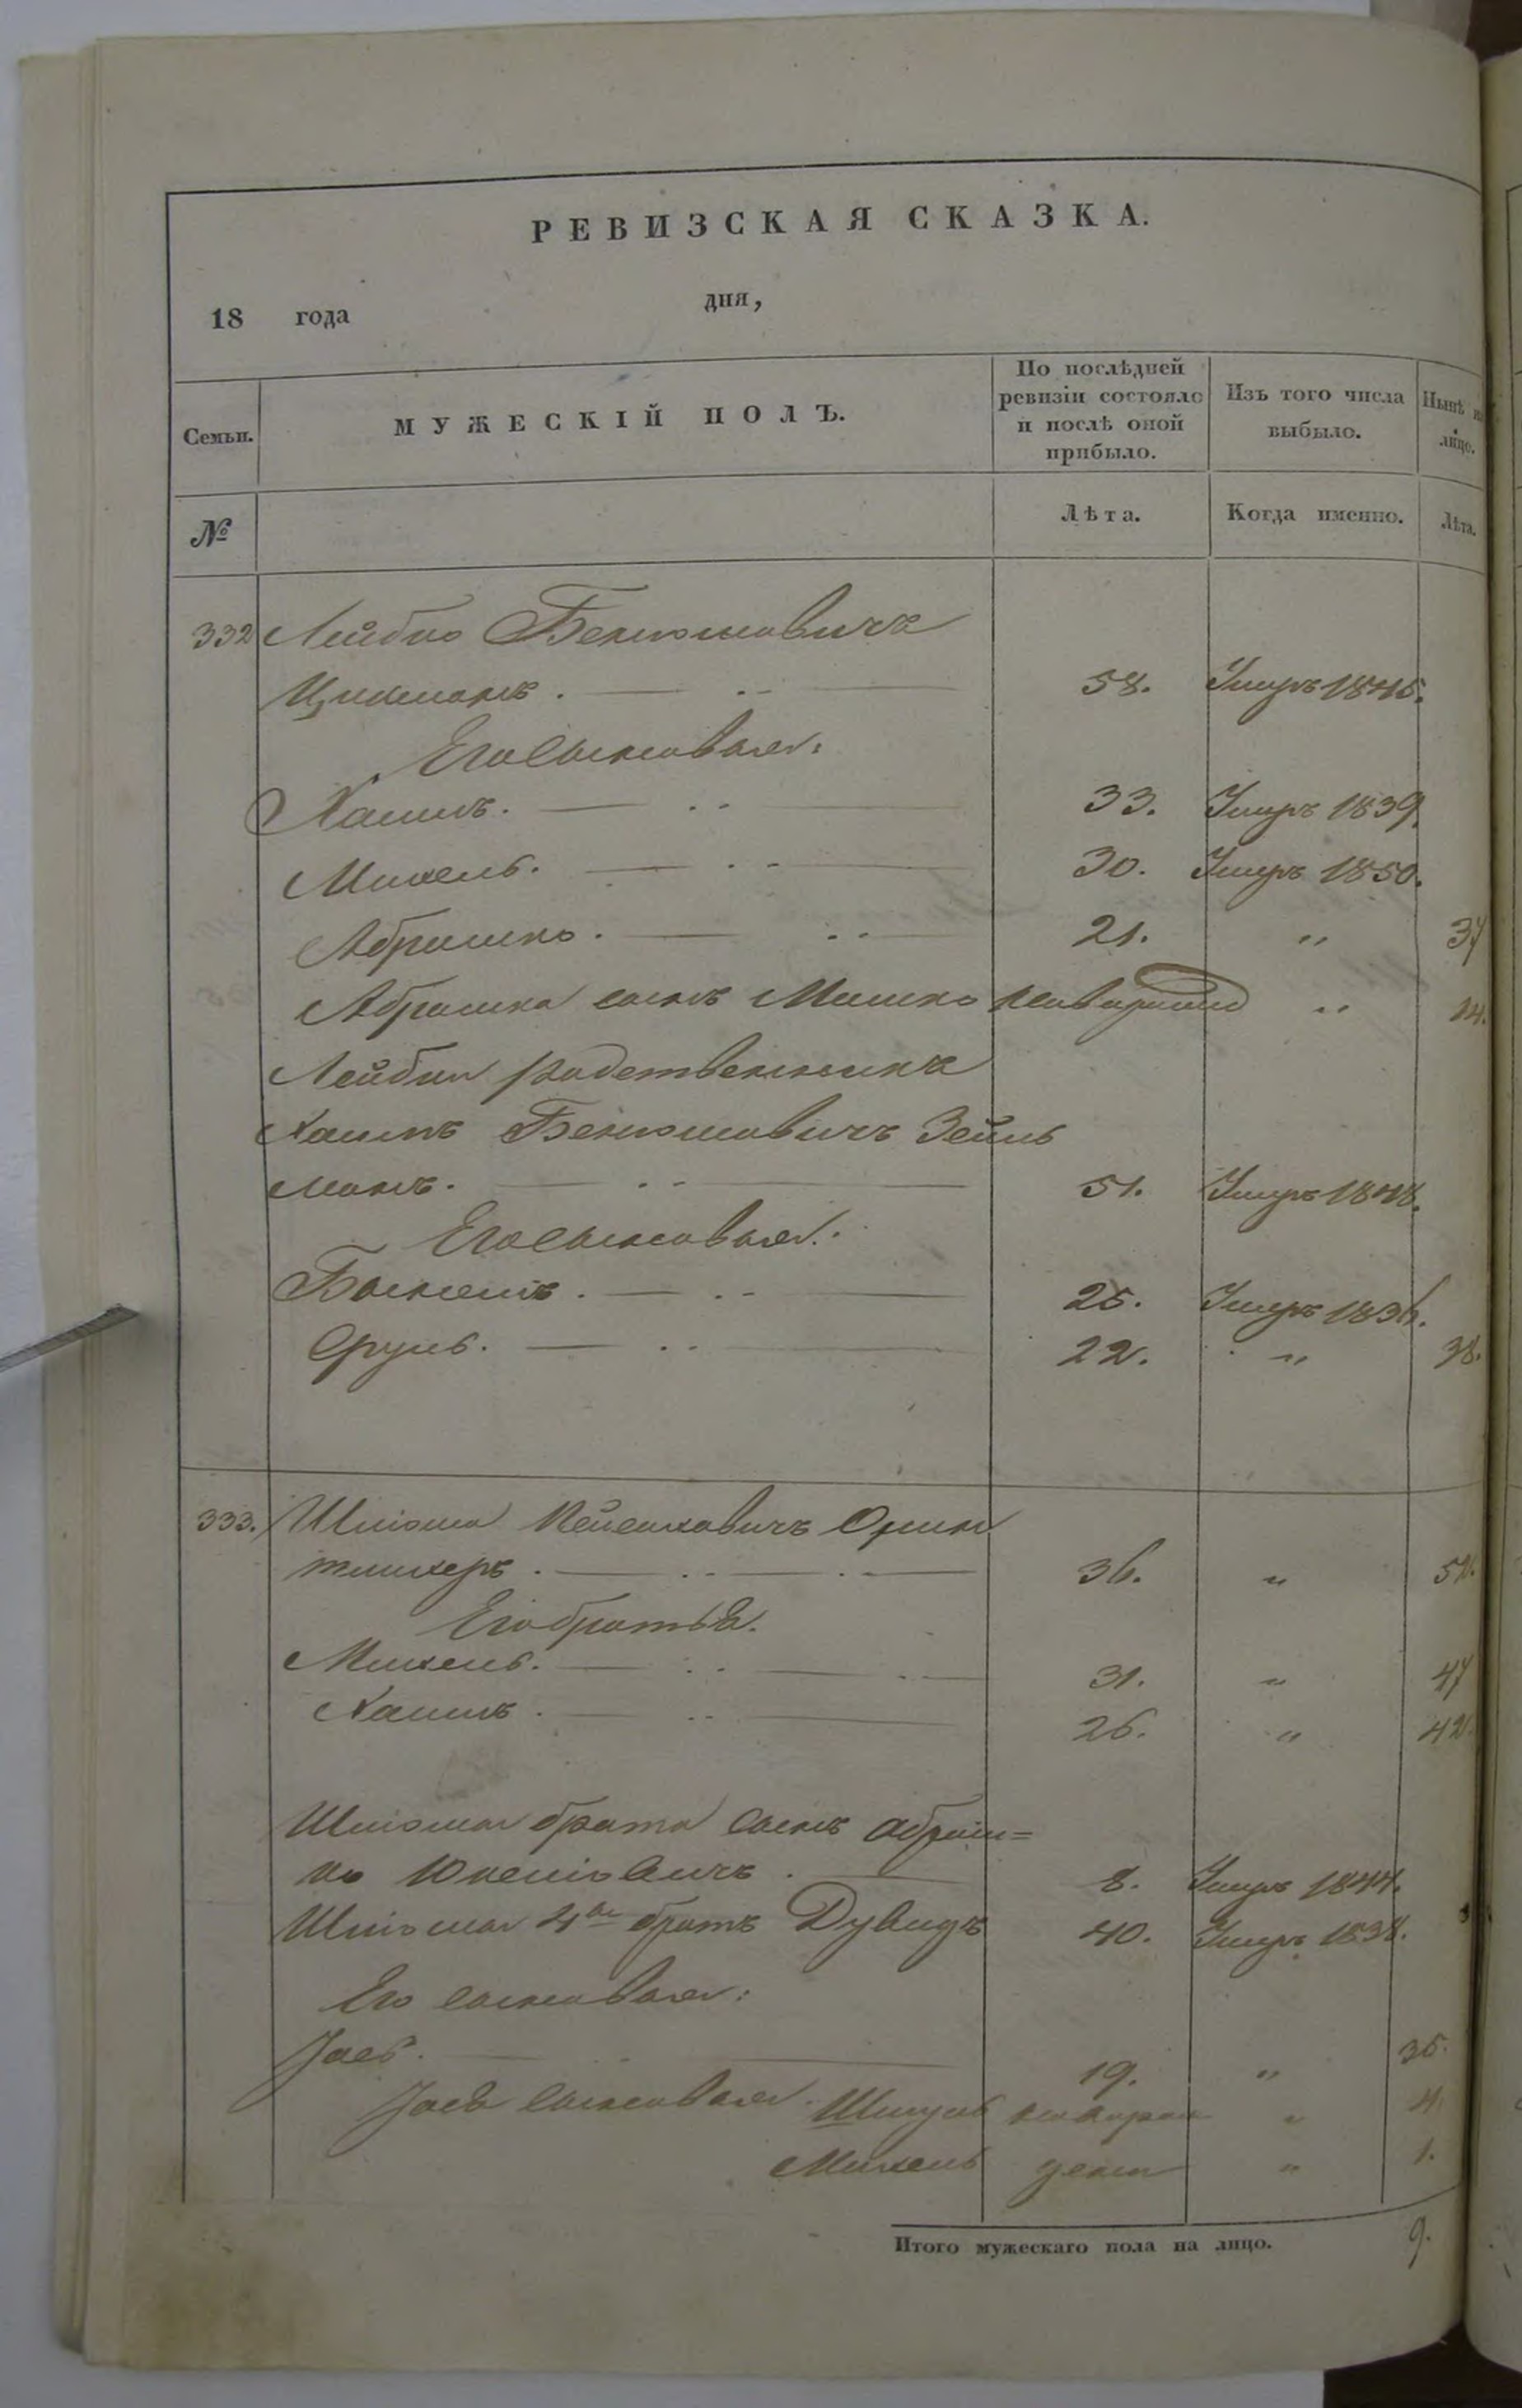 РЕВИЗСКАЯ СКАЗКА.
18 года дня,
Семьи. МУЖЕСКІЙ ПОЛЪ. По послѣдней ревизіи состояло и послѣ оной прибыло. Изъ того числа выбыло. Нынѣ на лицо.
№ Лѣта. Когда именно. Лѣта.
332 Лейбко Бениомовичъ
58. Умеръ 1845.
Его сыновья:
Хаимъ. 33. Умеръ 1839.
Михель. 30. Умеръ 1850.
Абрашко. 21. " 37
Абрашка сынъ Мошко " 14.
Лейбки родственникъ
Хаимъ Бениомовичъ Зейль
манъ. 51. Умеръ 1848.
Его сыновья:
25. Умеръ 1836.
Сруль. 22. " 38.
333. Шліома
36. " 52.
Его братья.
Михель. 31. " 47
Хаимъ. 26. " 42.
Шліомы брата сынъ Абраш=
ко 8. Умеръ 1844.
Шліомы 4й братъ Дувидъ 40. Умеръ 1838.
Его сыновья:
Іось. 19. " 35.
Іося сыновья. Шмуль " 4.
Михель " 1.
Итого мужескаго пола на лицо. 9.